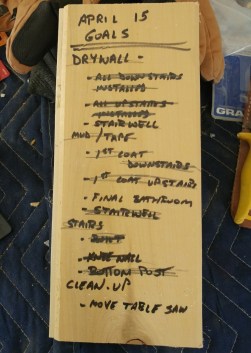 APRIL 15
GOALS
DRYWALL -
- ALL DOWNSTAIRS
INSTALLED
- ALL UPSTAIRS
INSTALLED
- STAIRWELL
MUD / TAPE
- 1ST COAT
DOWNSTAIRS
- 1ST COAT UPSTAIRS
- FINAL BATHROOM
- STAIRWELL
STAIRS
- BOTTOM POST
CLEAN.UP
- MOVE TABLE SAW
GRA